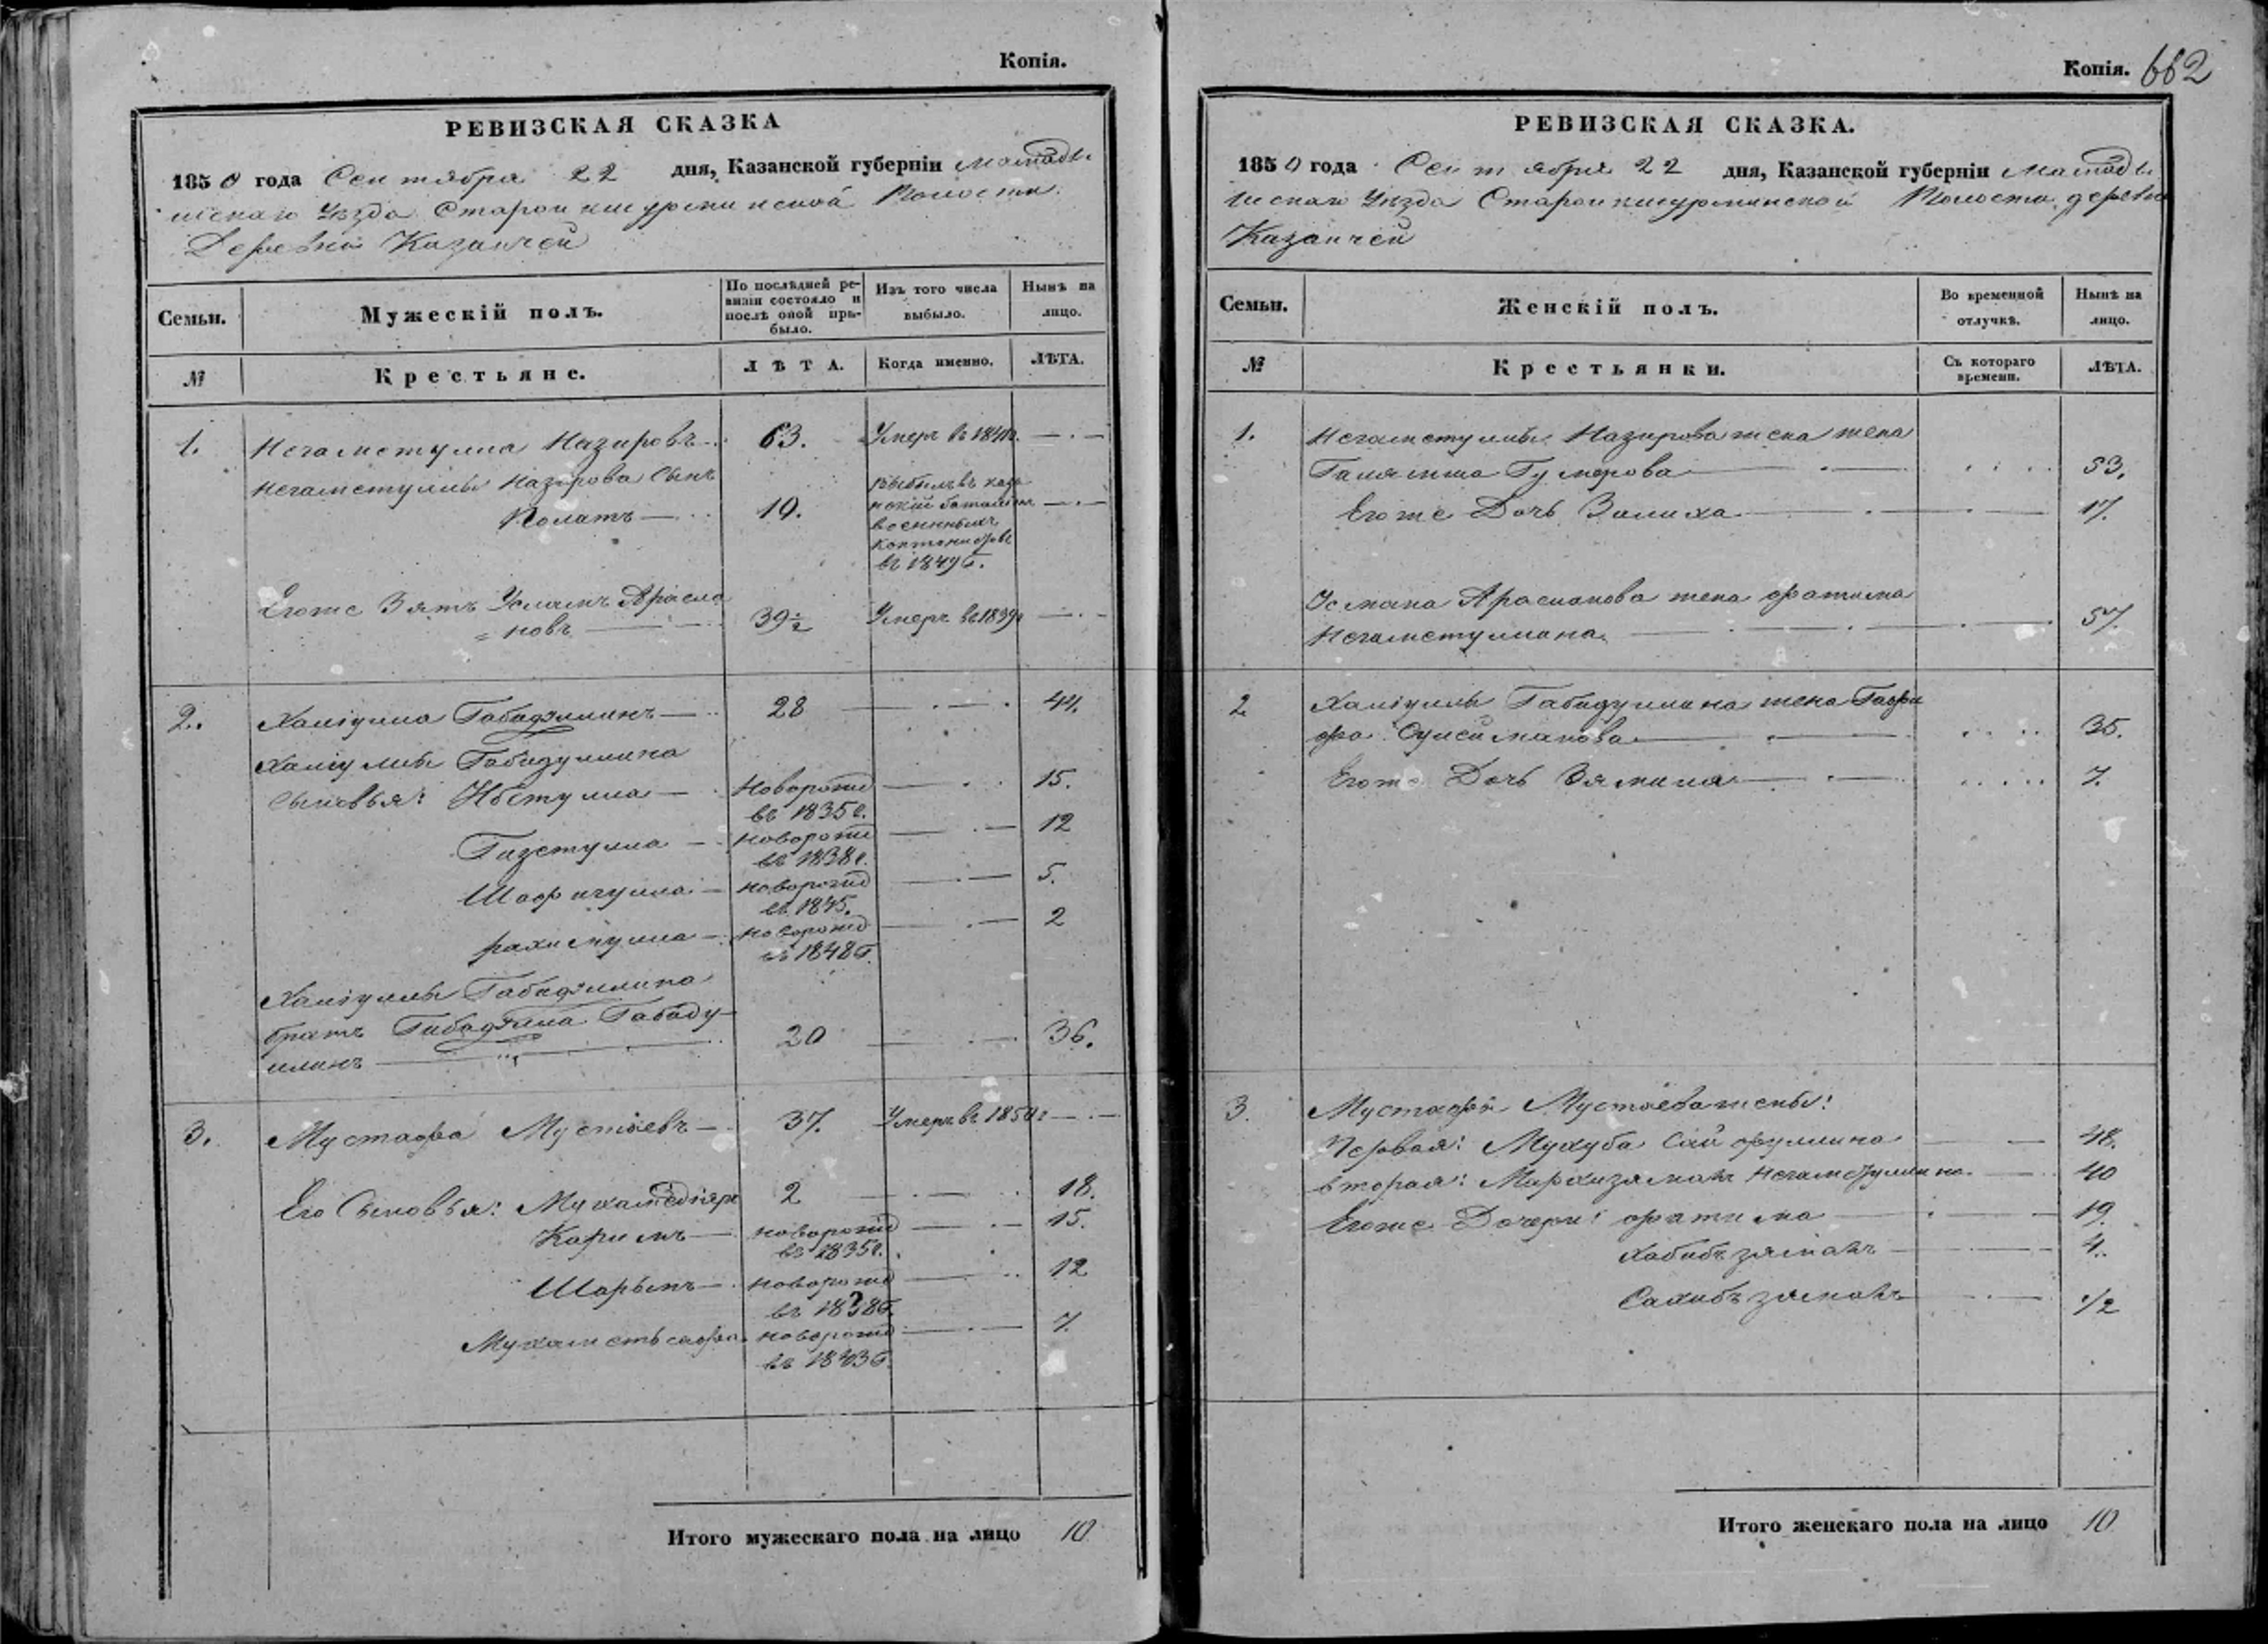 Копія.
РЕВИЗСКАЯ СКАЗКА
1850 года Сентября 22 дня, Казанской губерніи Мамады
шскаго Уѣзда Старой Волости
Деревни Казанчей
Семьи.
Мужескій полъ.
По послѣдней ре-
визіи состояло и
послѣ оной при-
было.
Изъ того числа
выбыло.
Нынѣ на
лицо.
№
Крестьяне.
ЛѢТА.
Когда именно.
ЛѢТА.
1. Негаметулла Назировъ 63. Умеръ въ
Негаметуллы Назирова Сынъ
Полатъ 19. Выбылъ въ каза
нскій баталіонъ
военныхъ
кантонистовъ
въ 1849г.
Егоже Зять Усманъ Арасла
новъ 39½ Умеръ въ 1839г
2. Халіулла Габидуллинъ 28 44.
Халіуллы Габидуллина
Сыновья: Ибетулла Новорожд 15.
въ 1835г.
Газетулла новорожд 12
въ 1838г.
Шафигулла новорожд 5.
въ 1845.
рахметулла новорожд 2
въ 1848г.
Халіуллы Габидуллина
братъ Гибадулла Габиду-
ллинъ 20 36.
3. Мустафа Мустаевъ 37. Умеръ въ 1850г
Его Сыновья: Мухамедъяръ 2 18.
Каримъ новорожд 15.
въ 1835г.
Шарыпъ новорожд 12
въ 1838г.
Мухаметьсафа новорожд 7.
въ 1843г.
Итого мужескаго пола на лицо 10
Копія. 662
РЕВИЗСКАЯ СКАЗКА.
1850 года Сентября 22 дня, Казанской губерніи Мамады
шскаго Уѣзда Старой Волости деревни
Казанчей
Семьи.
Женскій полъ.
Во временной
отлучкѣ.
Нынѣ на
лицо.
№
Крестьянки.
Съ котораго
времени.
ЛѢТА.
1. Негаметуллы Назирова жена жена
Галямша Гумерова 53.
Егоже Дочь Залиха 17.
Усмана Арасланова жена фатима
Негаметуллина 57.
2 Халіуллы Габидуллина жена Гафи
фа Сулейманова 35.
Егоже Дочь Зямила 7.
3. Мустафы Мустаева жены:
Первая: Мухуба Сайфуллина 48.
вторая: Мархизямалъ Негаметуллина 40
Егоже Дочери: фатима 19.
Хабибъзямалъ 4.
Сахибъзямалъ 1/2
Итого женскаго пола на лицо 10